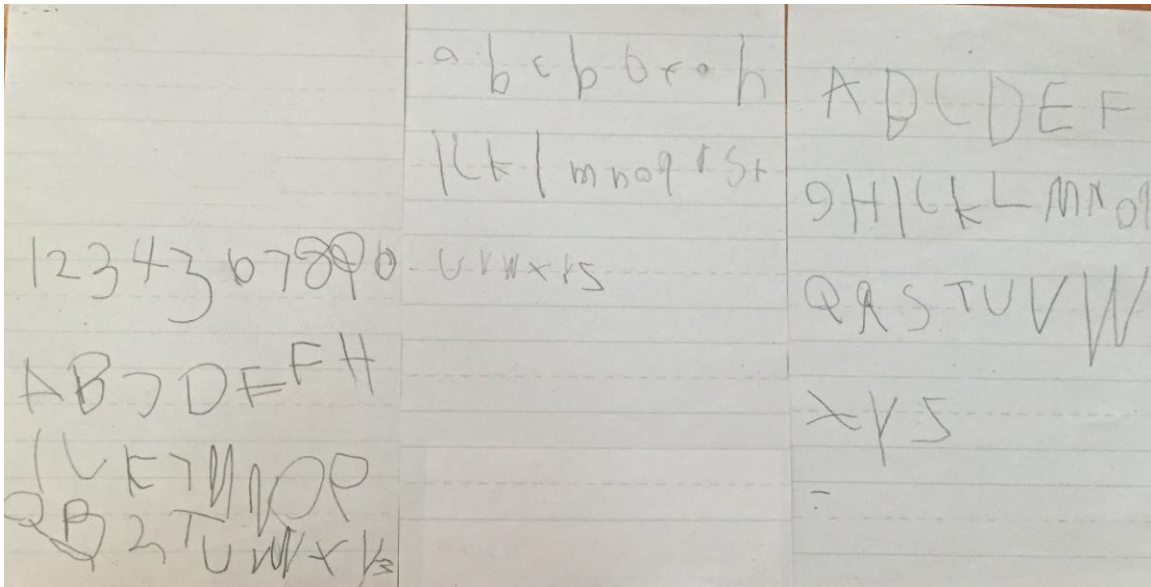 1234367890
A B D E F H
I K M N O P
Q B 2 T U W X Y s
a b c b h
k l m n o q r S t
u v w x y s
A B C D E F
9 H I L k L M N O q
Q R S T U V W
X Y S